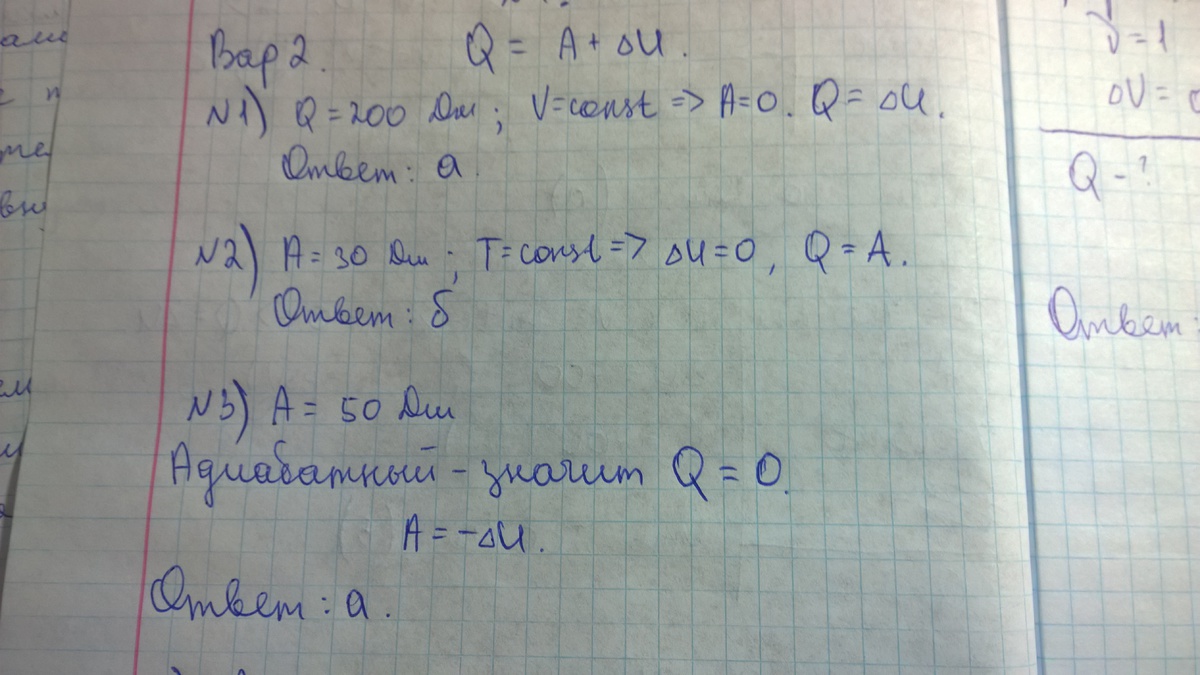 Вар 2. Q = A + ΔU.
N1) Q = 200 Дж; V=const => A=0. Q = ΔU.
Ответ: а.
N2) A = 30 Дж; T=const => ΔU=0, Q = A.
Ответ: б
N3) A = 50 Дж
Адиабатный - значит Q = 0.
A = -ΔU.
Ответ: а.
ν = 1
ΔV =
Q - ?
Ответ: